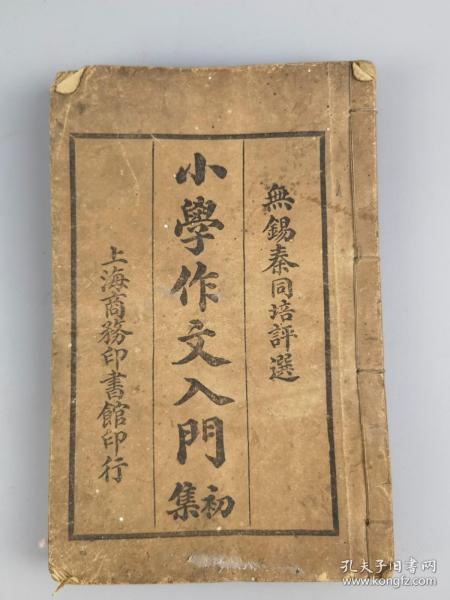 無錫秦同培評選
小學作文入門初集
上海商務印書館印行
孔夫子旧书网
www.kongfz.com